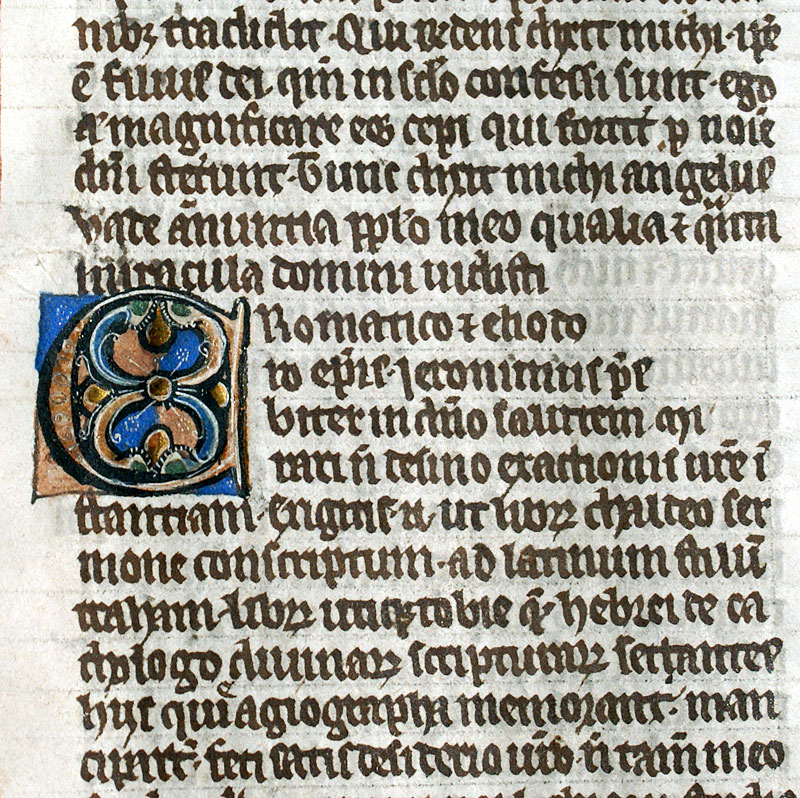 nibꝫ tradidit. Qui rñdens dixit michi. ip̄e
ē filius dei qm̄ in sc̄lo confessi sunt. ego
aͫ magnificare eos cepi qui fortit͛ p̱ noīe
dn̄i stet͛unt. Tunc dixit michi angelus
Vade ānuntia pp̄lo meo qualia ⁊ qͣnta
mirac̄ula domini uidisti
C Romatico ⁊ eliodo
ro ep̄is. Jeronimus p̄s
biter in dn̄o salutem. Mi
rari ñ desino exactionis ur̄e ī
stantiam. Exigitis n̄. ut librꝫ chaldeo ser
mone conscriptum. ad latinum stilū
traham. librꝫ utiqꝫ tobie qͥ hebrei de ca
thologo diuinaꝝ scripturaꝝ sectantes
hijs que agiographa memorant. man
ciparūt. feci satis desiderio ur̄o. ñ tam̄ meo